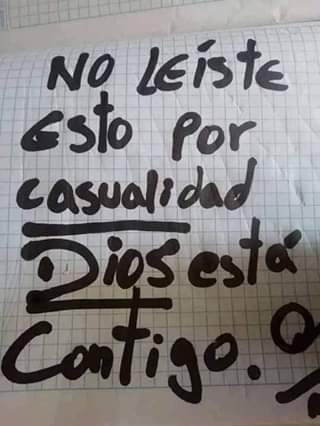 NO LEíste
Esto por
casualidad
Dios está
Contigo.